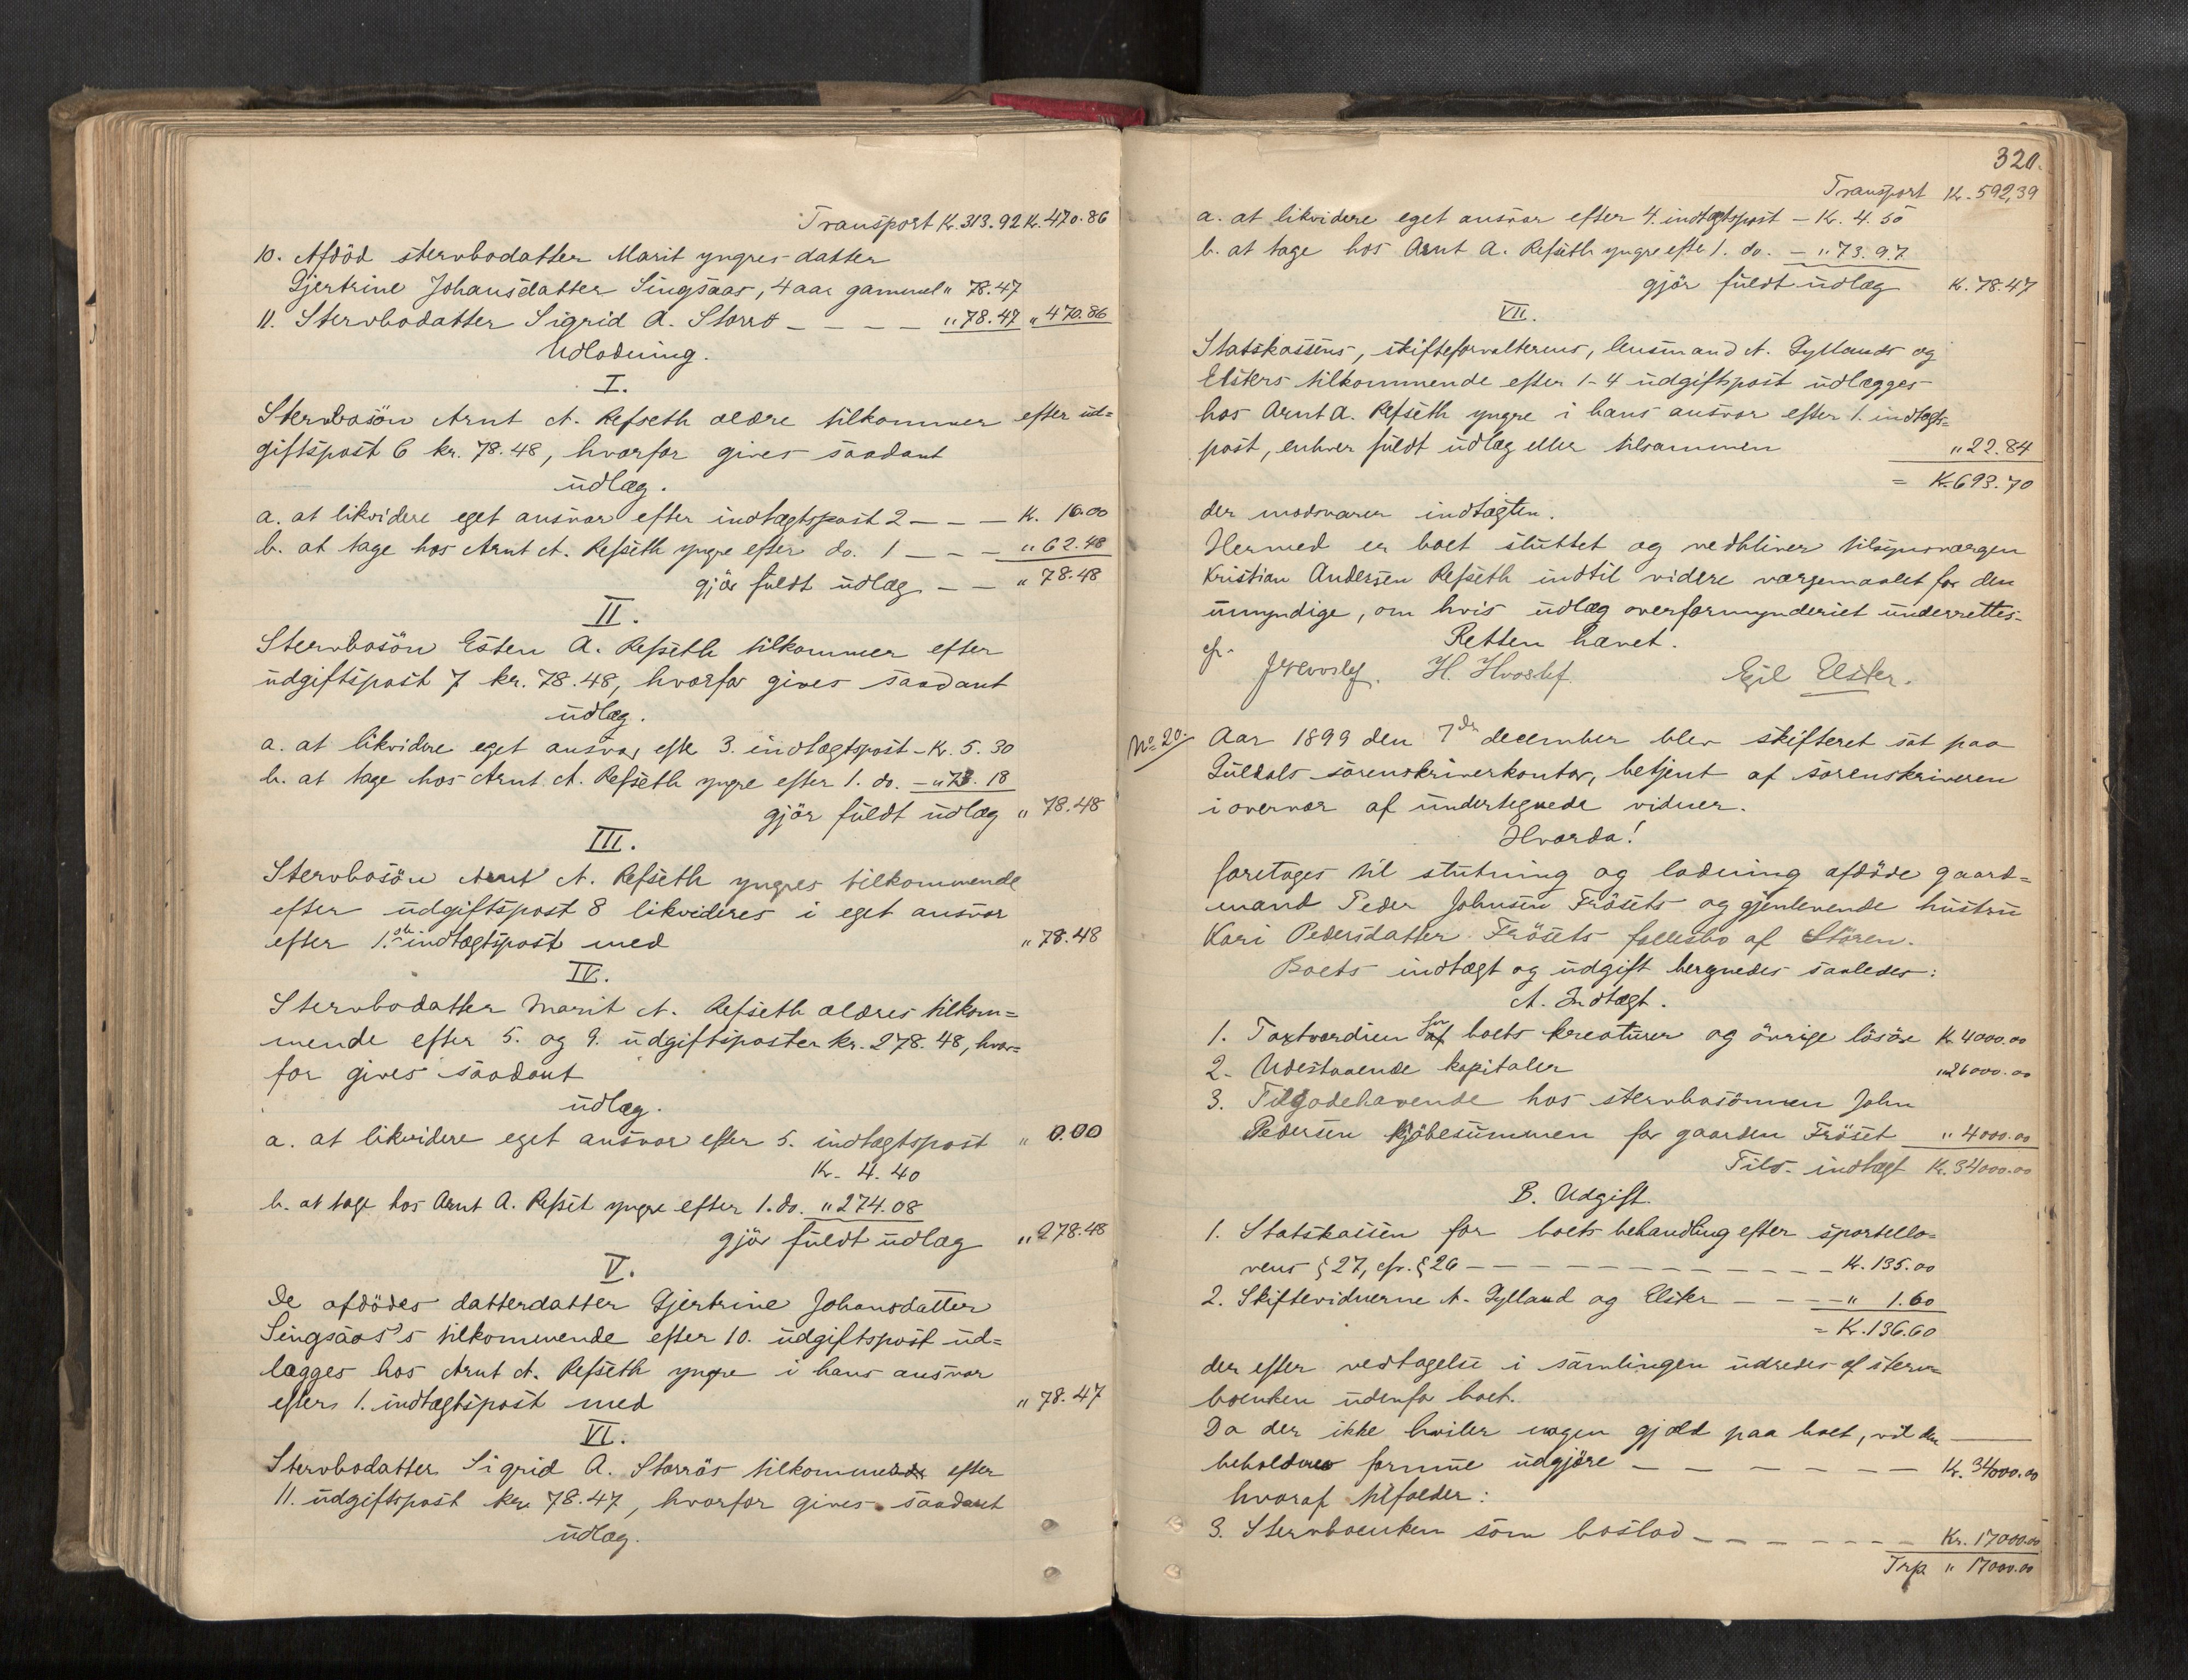 Transport Kr. 313.92 Kr. 470.86
10. Afdöd stervbodatter Marit yngres datter
Gjertrine Johansdatter Singsaas, 4 aar gammel " 78.47
11. Stervbodatter Sigrid A. Storrö — — — — " 78.47 " 470.86
Udlodning.
I.
Stervbosön Arnt A. Refseth ældre tilkommer efter ud=
giftspost 6 kr. 78.48, hvorfor gives saadant
udlæg.
a. at likvidere eget ansvar efter indtægtspost 2 — — — Kr. 16.00
b. at tage hos Arnt A. Refseth yngre efter do. 1 — — — " 62.48
gjör fuldt udlæg — — " 78.48
II.
Stervbosön Esten A. Refseth tilkommer efter
udgiftspost 7 kr. 78.48, hvorfor gives saadant
udlæg.
a. at likvidere eget ansvar efter 3. indtægtspost – Kr. 5.30
b. at tage hos Arnt A. Refseth yngre efter 1. do. – " 73.18
gjör fuldt udlæg " 78.48
III.
Stervbosön Arnt A. Refseth yngres tilkommende
efter udgiftspost 8 likvideres i eget ansvar
efter 1. indtægtspost med " 78.48
IV.
Stervbodatter Marit A. Refseth ældres tilkom=
mende efter 5. og 9. udgiftsposter kr. 278.48, hvor=
for gives saadant
udlæg.
a. at likvidere eget ansvar efter 5. indtægtspost " 0.00
Kr. 4.40
b. at tage hos Arnt A. Refset yngre efter 1. do. " 274.08
gjör fuldt udlæg " 278.48
V.
De afdödes datterdatter Gjertrine Johansdatter
Singsaas's tilkommende efter 10. udgiftspost ud=
lægges hos Arnt A. Refseth yngre i hans ansvar
efter 1. indtægtspost med " 78.47
VI.
Stervbodatter Sigrid A. Storrös tilkommende efter
11. udgiftspost kr. 78.47, hvorfor gives saadant
udlæg.
320.
Transport Kr. 592,39
a. at likvidere eget ansvar efter 4. indtægtspost – Kr. 4.50
b. at tage hos Arnt A. Refseth yngre efter 1. do. – " 73.97
gjör fuldt udlæg Kr. 78.47
VII.
Statskassens, skifteforvalterens, lensmand A. Gyllands og
Elsters tilkommende efter 1-4 udgiftspost udlægges
hos Arnt A. Refseth yngre i hans ansvar efter 1. indtægts=
post, enhver fuldt udlæg eller tilsammen " 22.84
= Kr. 693.70
der modsvarer indtægten.
Hermed er boet sluttet og vedbliver tilsynsværgen
Kristian Andersen Refseth indtil videre værgemaalet for den
umyndige, om hvis udlæg overformynderiet underrettes.
Retten hævet.
cfr. J Hvoslef. H. Hvoslef. Egil Elster.
No 20. Aar 1899 den 7de december blev skifteret sat paa
Guldals sorenskriverkontor, betjent af sorenskriveren
i overvær af undertegnede vidner.
Hvorda!
foretoges til slutning og lodning afdöde gaard=
mand Peder Johnsen Frösets og gjenlevende hustru
Kari Pedersdatter Frösets fællesbo af Stören.
Boets indtægt og udgift beregnedes saaledes:
A. Indtægt.
1. Taxtværdien af for boets kreaturer og övrige lösöre Kr. 4000.00
2. Udestaaende kapitaler " 26000.00
3. Tilgodehavende hos stervbosönnen John
Pedersen kjöbesummen for gaarden Fröset " 4000.00
Tils. indtægt Kr. 34000.00
B. Udgift.
1. Statskassen for boets behandling efter sportello=
vens § 27, cfr. § 26 — — — — — — — — — Kr. 135.00
2. Skiftevidnerne A. Gylland og Elster — — — — " 1.60
= Kr. 136.60
der efter vedtagelse i samlingen udredes af sterv=
boenken udenfor boet.
Da der ikke hviler nogen gjæld paa boet, vil den
beholdne formue udgjöre — — — — — — — Kr. 34000.00
hvoraf tilfalder:
3. Stervboenken som boslod — — — — — — — Kr. 17000.00
Trp. " 17000.00